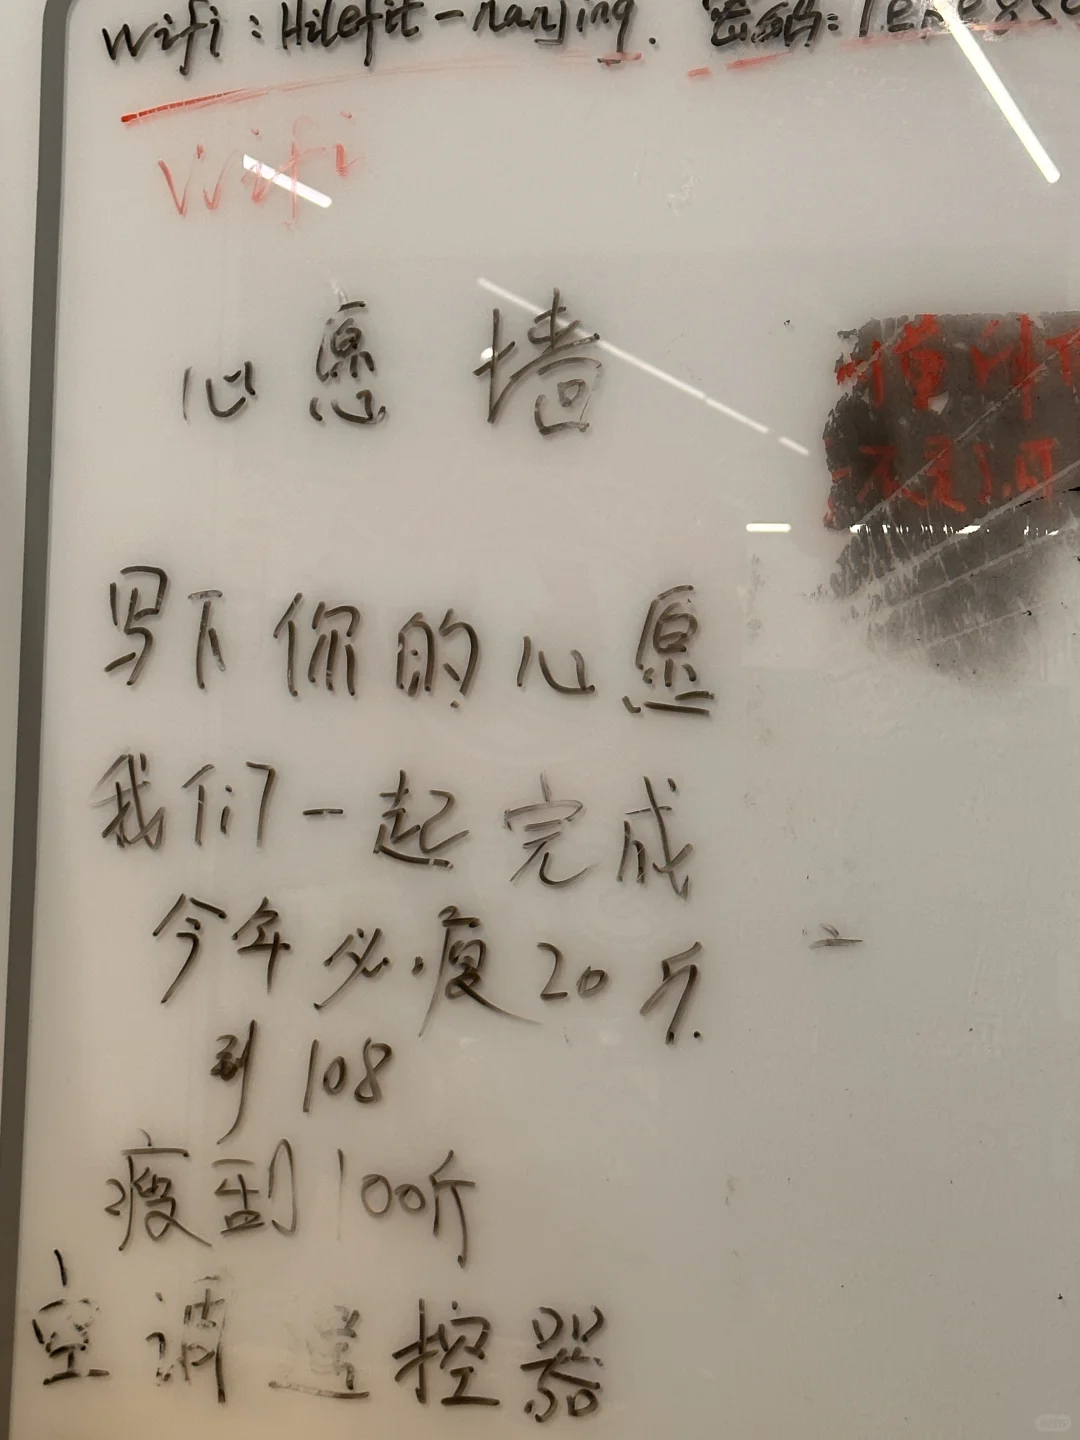 wifi：Hilefit-nanjing. 密码：
wifi
心愿墙
写下你的心愿
我们一起完成
今年必瘦20斤
到108
瘦到100斤
空调遥控器